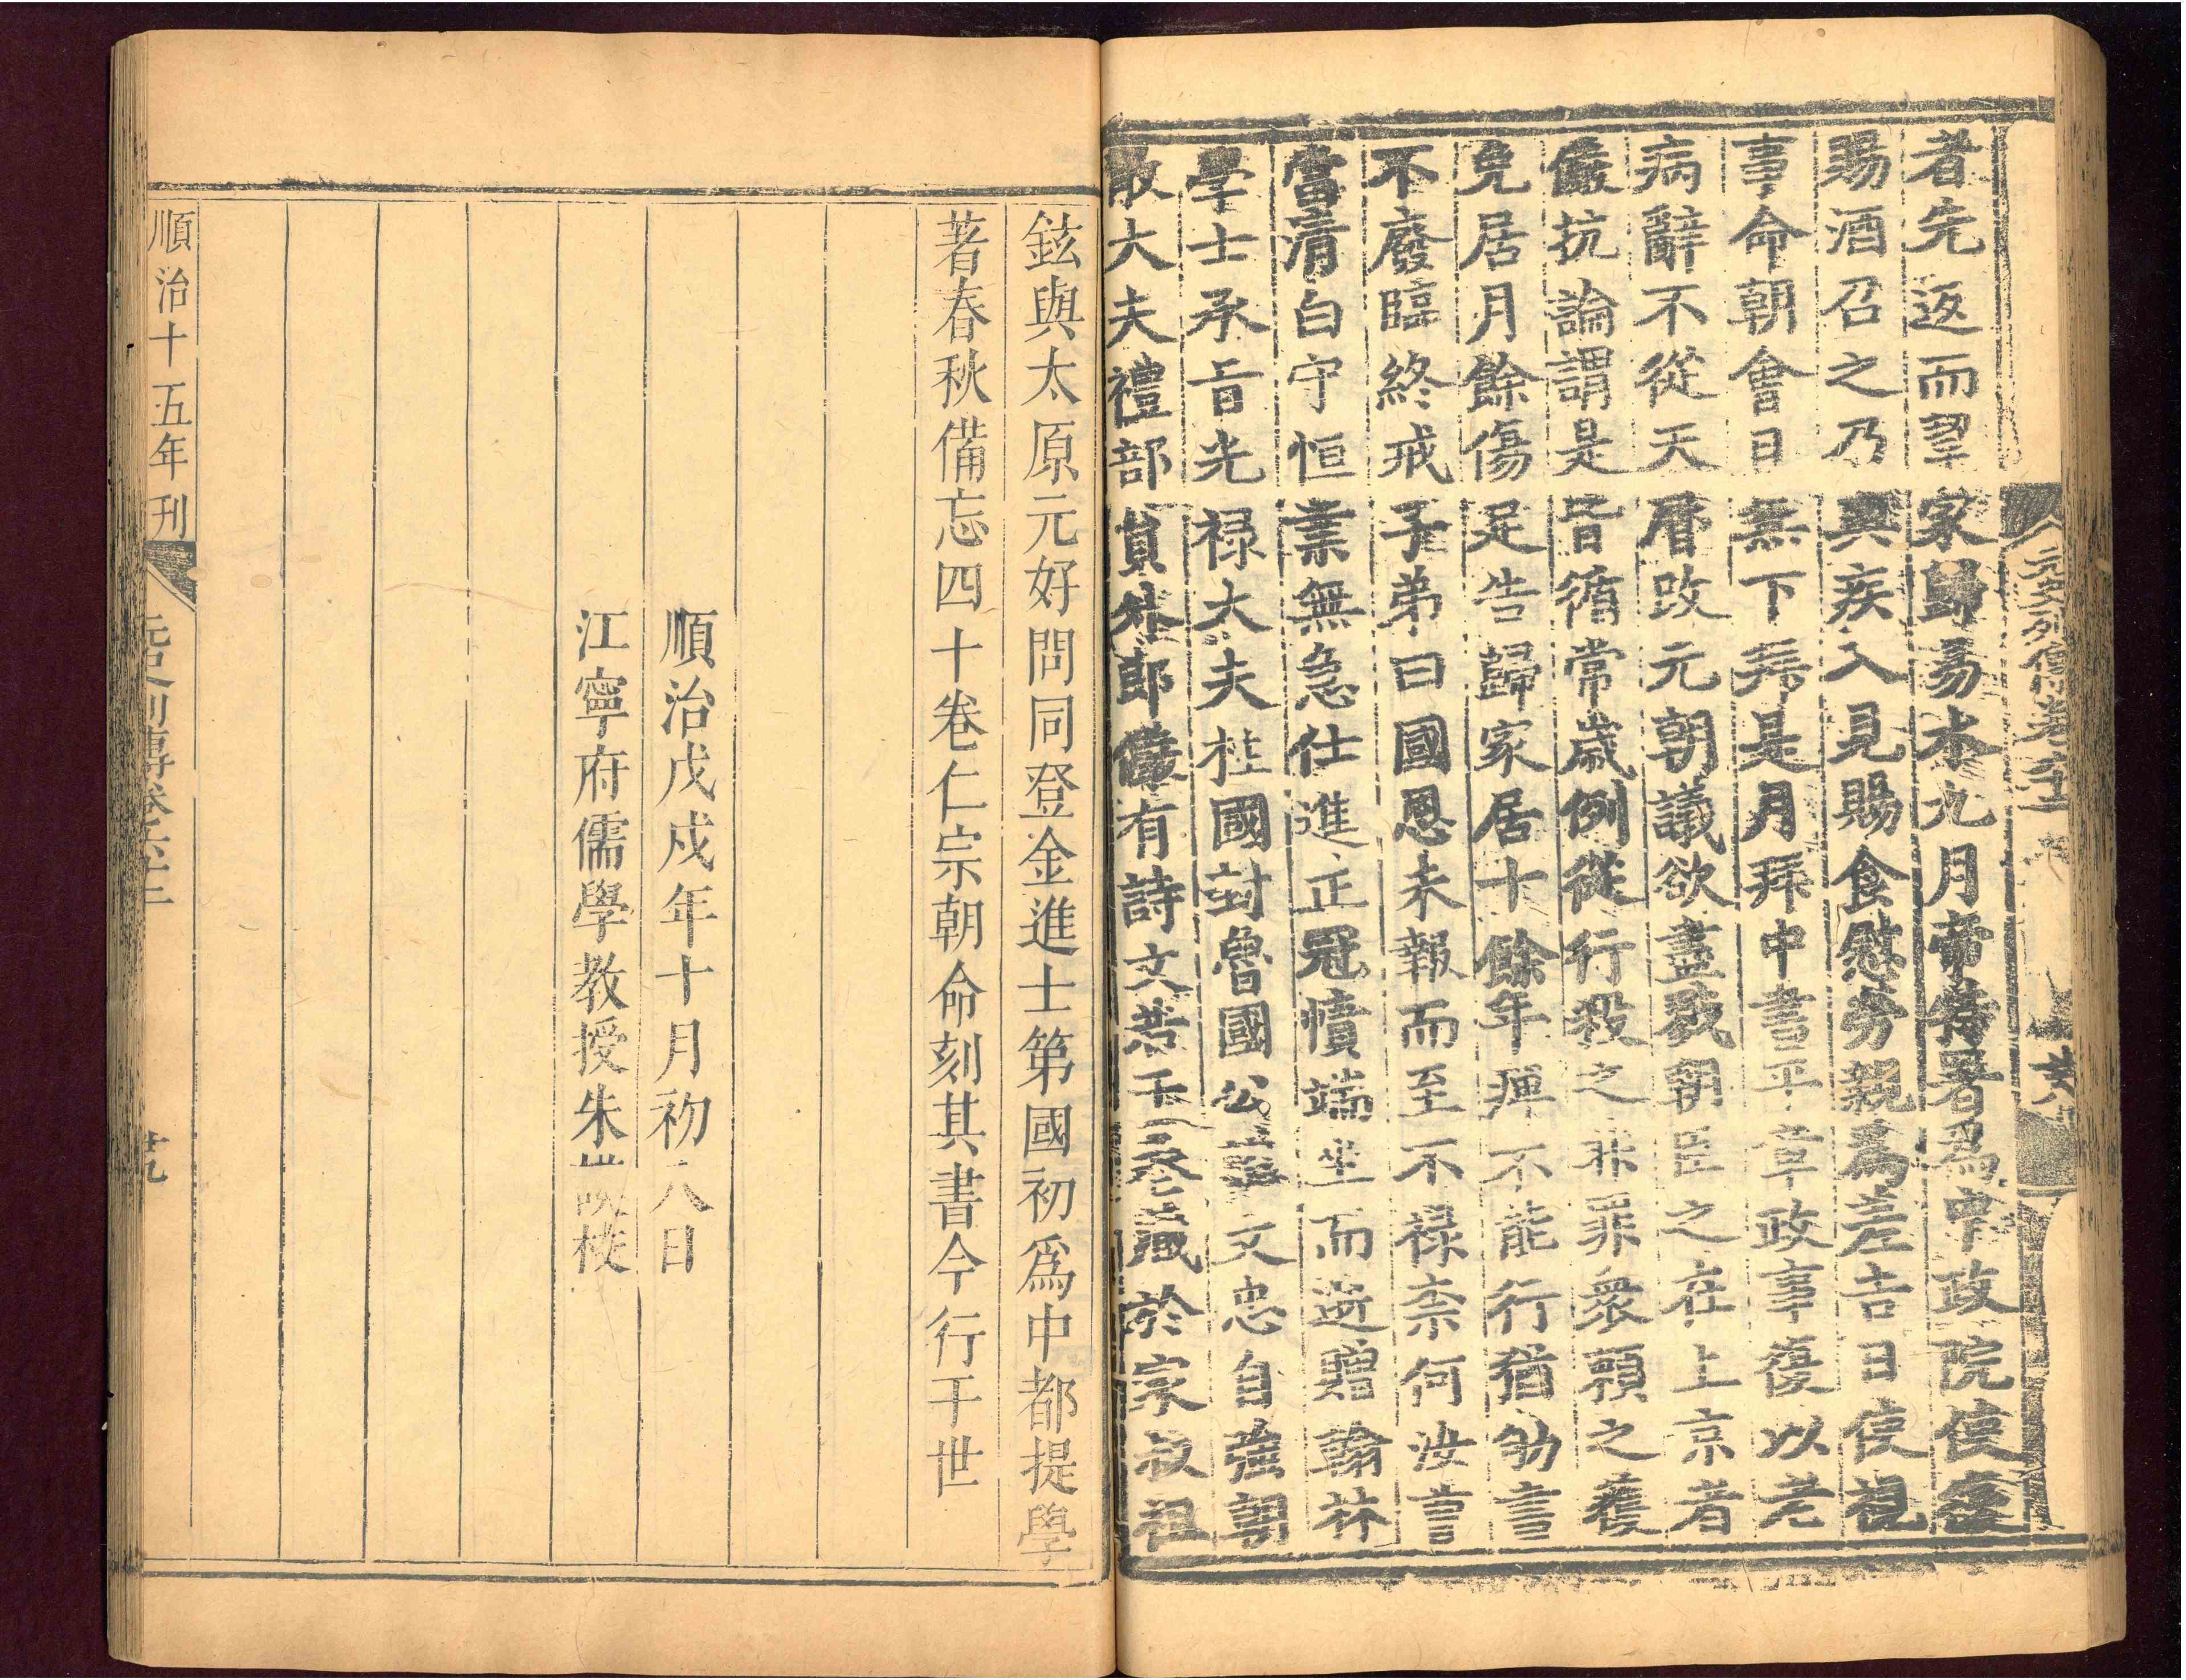 元史列傳卷六十二
者先返而羣家歸易水九月帝
爲中政院使復
賜酒召之乃與疾入見賜食慰勞親爲差吉日使視
事命朝會日無下拜是月拜中書平章政事復以老
病辭不從天曆改元朝議欲盡戮朝臣之在上京者
儼抗論謂是皆循常歲例從行殺之非罪衆賴之獲
免居月餘傷足告歸家居十餘年痺不能行猶勅言
不廢臨終戒子弟曰國恩未報而至不祿柰何汝言
當清白守恒業無急仕進正冠幘端坐而逝贈翰林
學士承旨光祿大夫柱國封魯國公諡文忠自強朝
散大夫禮部員外郎儼有詩文若干卷藏於家叔祖
鉉與太原元好問同登金進士第國初爲中都提學
著春秋備忘四十卷仁宗朝命刻其書今行于世
順治戊戌年十月初八日
江寧府儒學教授朱
校
順治十五年刊
元史列傳卷六十二
十九